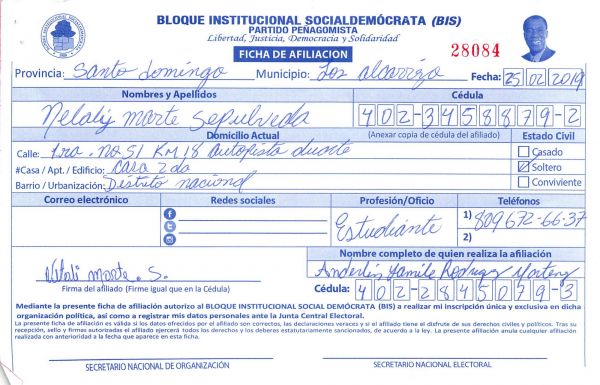 BLOQUE INSTITUCIONAL SOCIALDEMÓCRATA (BIS)
PARTIDO PEÑAGOMISTA
Libertad, Justicia, Democracia y Solidaridad
FICHA DE AFILIACION
28084
Provincia: Santo domingo Municipio: Los alcarrizo Fecha: 25 02 2019
Nombres y Apellidos Cédula
Nelaliz marte Sepulveda 402-3458879-2
Domicilio Actual (Anexar copia de cédula del afiliado) Estado Civil
Calle: 1ra. no 51 KM 18 autopista duarte Casado
#Casa / Apt. / Edificio: Casa 2da Soltero
Barrio / Urbanización: Distrito nacional Conviviente
Correo electrónico Redes sociales Profesión/Oficio Teléfonos
Estudiante 1) 809 672-66-37
2)
Nombre completo de quien realiza la afiliación
marte. S. Yamile Rodriguez
Firma del afiliado (Firme igual que en la Cédula) Cédula: 402-2845079-3
Mediante la presente ficha de afiliación autorizo al BLOQUE INSTITUCIONAL SOCIAL DEMÓCRATA (BIS) a realizar mi inscripción única y exclusiva en dicha
organización política, así como a registrar mis datos personales ante la Junta Central Electoral.
La presente ficha de afiliación es válida si los datos ofrecidos por el afiliado son correctos, las declaraciones veraces y si el afiliado tiene el disfrute de sus derechos civiles y políticos. Tras su
recepción, sello y firmas autorizadas el afiliado ejercerá todos los derechos y los deberes estatutariamente sancionados, de acuerdo a la ley. La presente afiliación anula cualquier afiliación
realizada con anterioridad a la fecha que aparece en esta ficha.
SECRETARIO NACIONAL DE ORGANIZACIÓN SECRETARIO NACIONAL ELECTORAL